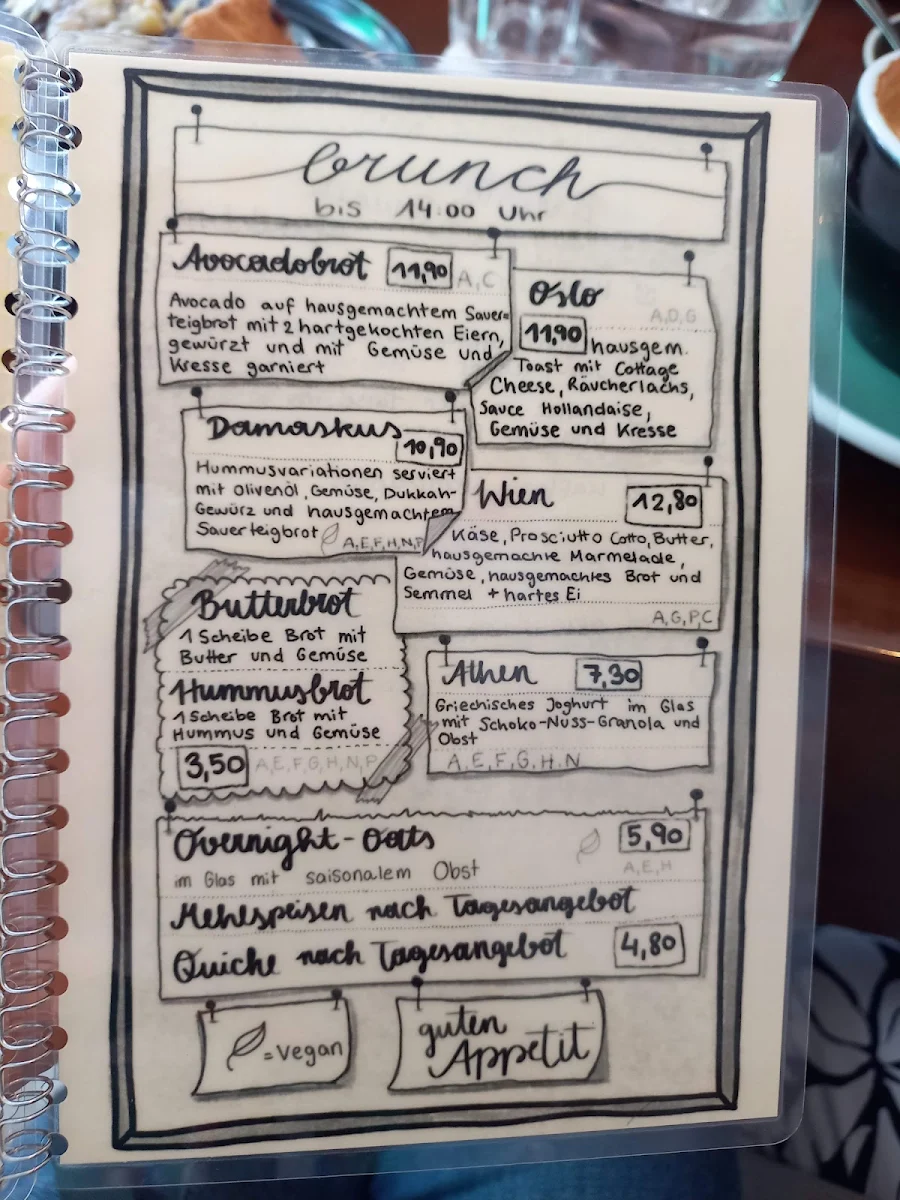 brunch
bis 14:00 Uhr
Avocadobrot 11,90 A,C
Avocado auf hausgemachtem Sauer=
teigbrot mit 2 hartgekochten Eiern,
gewürzt und mit Gemüse und
Kresse garniert
Oslo
A,D,G
11,90 hausgem.
Toast mit Cottage
Cheese, Räucherlachs,
Sauce Hollandaise,
Gemüse und Kresse
Damaskus 10,90
Hummusvariationen serviert
mit Olivenöl, Gemüse, Dukkah-
Gewürz und hausgemachtem
Sauerteigbrot A,E,F,H,N,P
Wien 12,80
Käse, Prosciutto Cotto, Butter,
hausgemachte Marmelade,
Gemüse, hausgemachtes Brot und
Semmel + hartes Ei
A,G,P,C
Butterbrot
1 Scheibe Brot mit
Butter und Gemüse
Hummusbrot
1 Scheibe Brot mit
Hummus und Gemüse
3,50 A,E,F,G,H,N,P
Athen 7,30
Griechisches Joghurt im Glas
mit Schoko-Nuss-Granola und
Obst
A,E,F,G,H,N
Overnight-Oats 5,90
im Glas mit saisonalem Obst A,E,H
Mehlspeisen nach Tagesangebot
Quiche nach Tagesangebot 4,80
=vegan
guten
Appetit